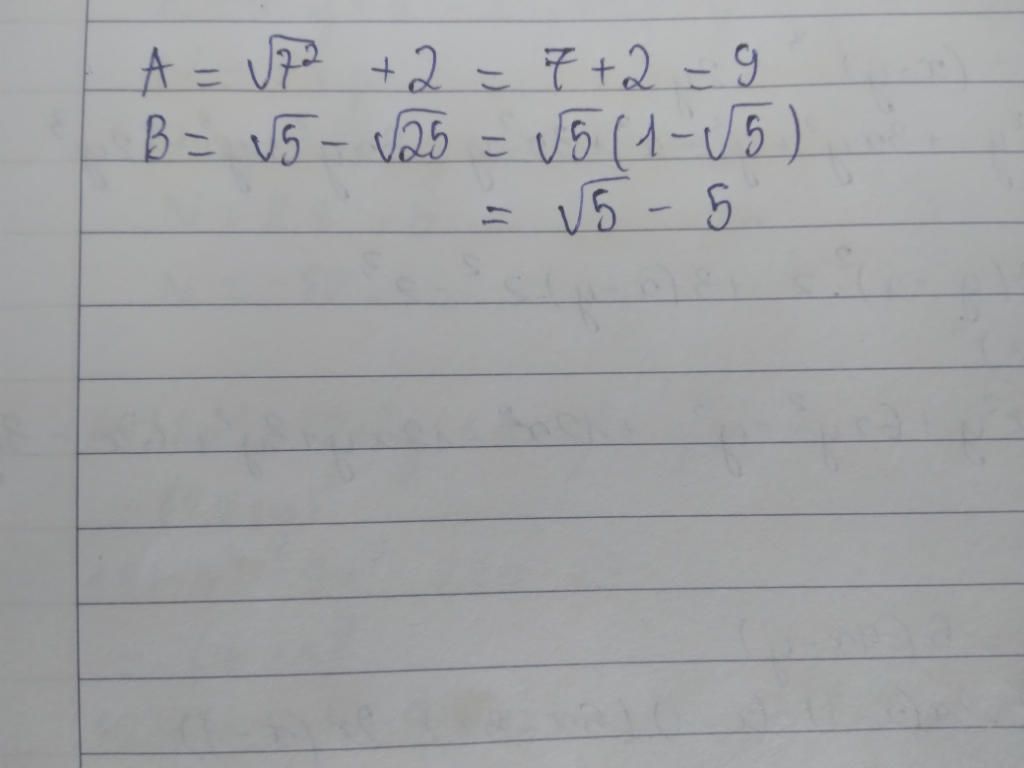 A = √7² + 2 = 7 + 2 = 9
B = √5 - √25 = √5 (1 - √5)
= √5 - 5